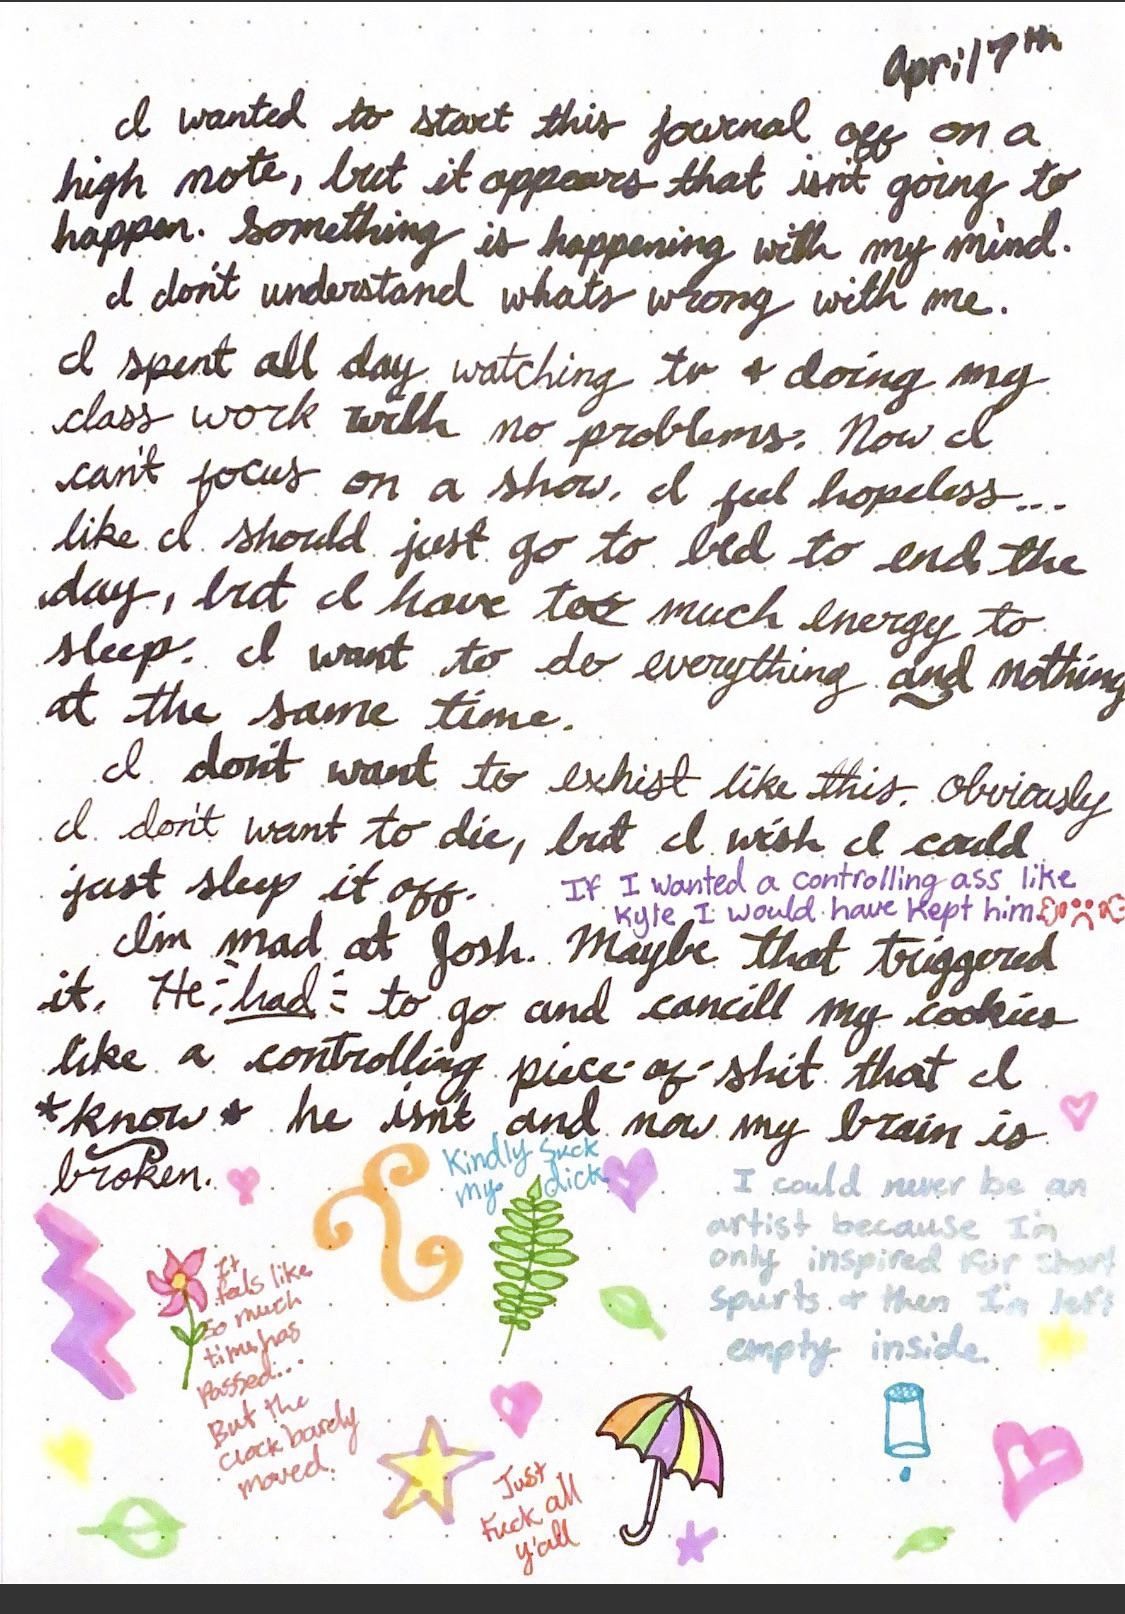 April 7th
I wanted to start this journal off on a
high note, but it appears that isn't going to
happen. Something is happening with my mind.
I don't understand whats wrong with me.
I spent all day watching tv + doing my
class work with no problems. Now I
can't focus on a show. I feel hopeless...
like I should just go to bed to end the
day, but I have too much energy to
sleep. I want to do everything and nothing
at the same time.
I don't want to exhist like this. Obviously
I don't want to die, but I wish I could
just sleep it off.
If I wanted a controlling ass like
Kyle I would have kept him
I'm mad at Josh. Maybe that triggered
it. He had to go and cancill my cookies
like a controlling piece-of-shit that I
*know* he isn't and now my brain is
broken.
Kindly suck
my dick
I could never be an
artist because I'm
only inspired for short
spurts + then I'm left
empty inside.
It
feels like
so much
time has
passed...
But the
clock barely
moved.
Just
Fuck all
y'all